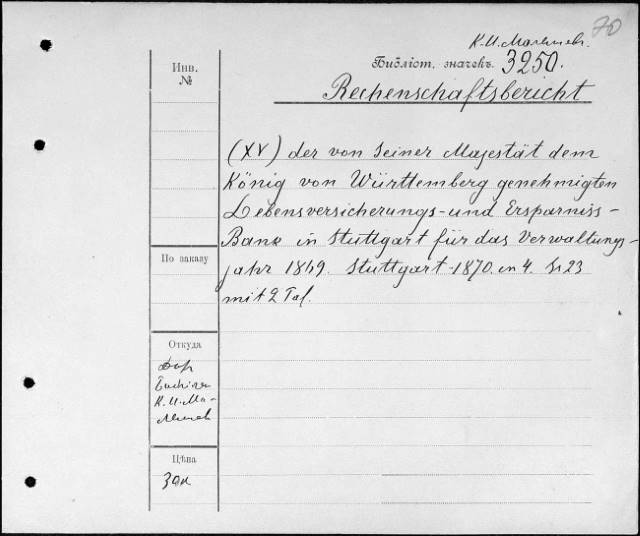 70
К.И.Малышев.
Инв.
№
Библіот. значекъ. 3250.
Rechenschaftsbericht
(XV) der von Seiner Majestät dem
König von Württemberg genehmigten
Lebensversicherungs- und Ersparniss-
Bank in Stuttgart für das Verwaltungs-
jahr 1869. Stuttgart 1870. in 4. S. 23
mit 2 Taf.
По заказу
Откуда
К.И.Ма-
Цѣна